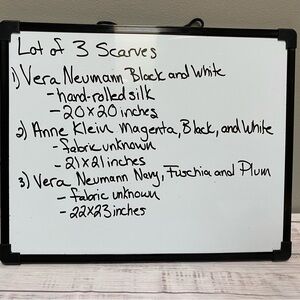 Lot of 3 Scarves
1) Vera Neumann Black and White
- hand-rolled silk
- 20x20 inches
2) Anne Klein Magenta, Black, and White
- fabric unknown
- 21x21 inches
3) Vera Neumann Navy, Fuschia and Plum
- fabric unknown
- 22x23 inches